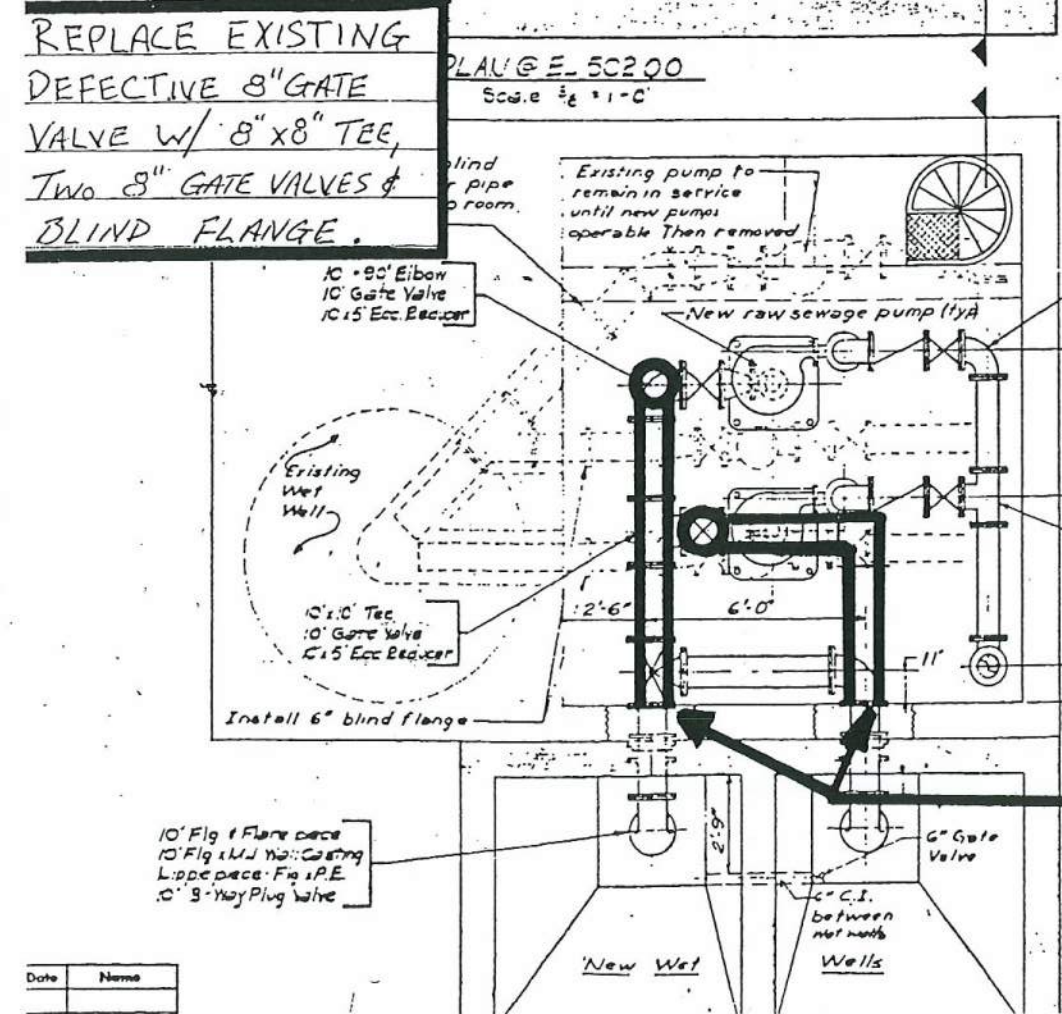 REPLACE EXISTING
DEFECTIVE 8" GATE
VALVE W/ 8"x8" TEE,
TWO 8" GATE VALVES &
BLIND FLANGE.
PLAN @ EL 502.00
Scale
blind
pipe
room.
Existing pump to
remain in service
until new pumps
operable Then removed
10" - 90° Elbow
10" Gate Valve
10x5 Ecc. Reducer
New raw sewage pump (typ)
Existing
Wet
Well
10"x10" Tee
10" Gate Valve
10x5 Ecc Reducer
2'-6"
6'-0"
11"
Install 6" blind flange
10" Flg & Flare piece
10" Flg x MJ Wall Casting
piece - Flg x P.E.
10" 3-Way Plug Valve
2'-9"
6" Gate
Valve
6" C.I.
between
wet wells
New Wet Wells
Date Name